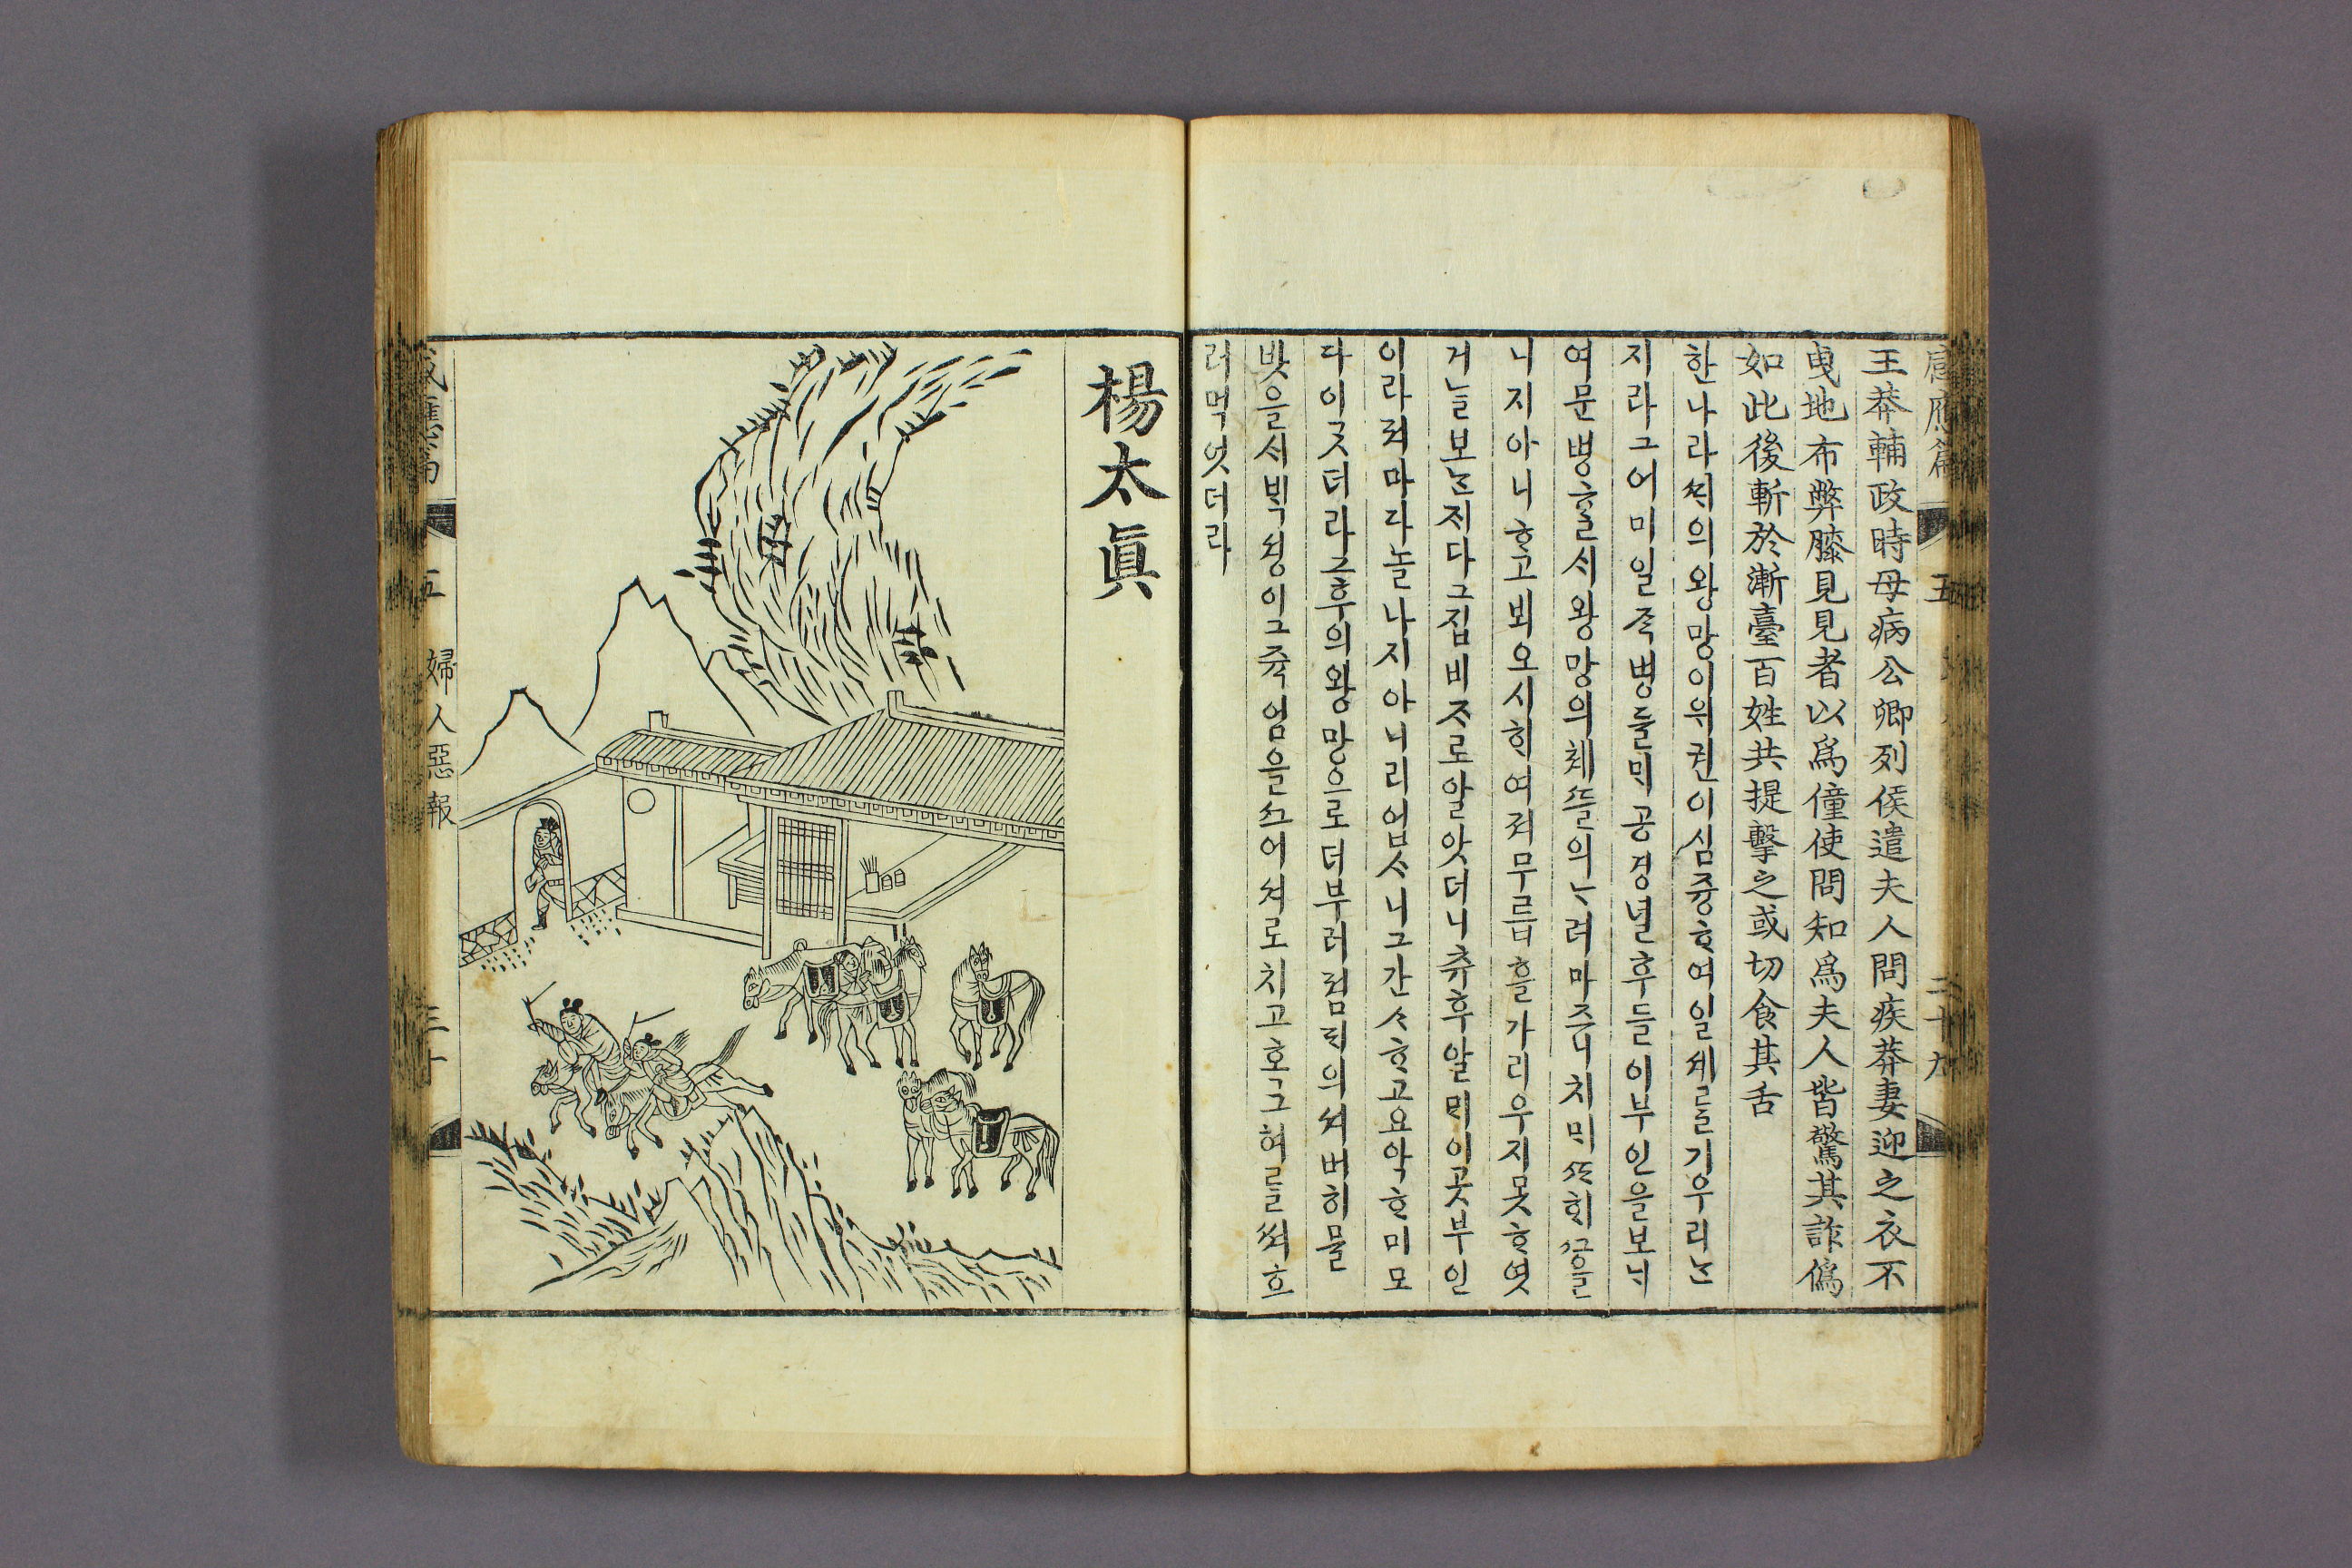 感應篇 五 二十九
王莽輔政時母病公卿列侯遣夫人問疾莽妻迎之衣不
曳地布弊膝見見者以爲僮使問知爲夫人皆驚其詐僞
如此後斬於漸臺百姓共提擊之或切食其舌
한나라ᄶᅥᆨ의왕망이위권이심즁ᄒᆞ여일셰ᄅᆞᆯ기우리ᄂᆞᆫ
지라그어미일ᄌᆞᆨ병들ᄆᆡ공경녈후들이부인을보ᄂᆡ
여문병ᄒᆞᆯᄉᆡ왕망의체ᄯᅳᆯ의ᄂᆞ려마즈니치미ᄯᆞᄒᆡᄭᅳᆯ
니지아니ᄒᆞ고뵈오시ᄒᆡ여져무릅흘가리우지못ᄒᆞ엿
거ᄂᆞᆯ보ᄂᆞᆫ지다그집비ᄌᆞ로알앗더니츄후알ᄆᆡ이곳부인
이라져마다놀나지아니리업ᄉᆞ니그간ᄉᆞᄒᆞ고요악ᄒᆞ미모
다이ᄀᆞᆺ더라그후의왕망으로더부러졈ᄃᆡ의셔버히믈
밧을ᄉᆡᄇᆡᆨ셩이그쥭엄을ᄭᅳ어셔로치고호그혀ᄅᆞᆯᄶᅥ흐
러먹엇더라
楊太眞
感應篇 五 婦人惡報 三十